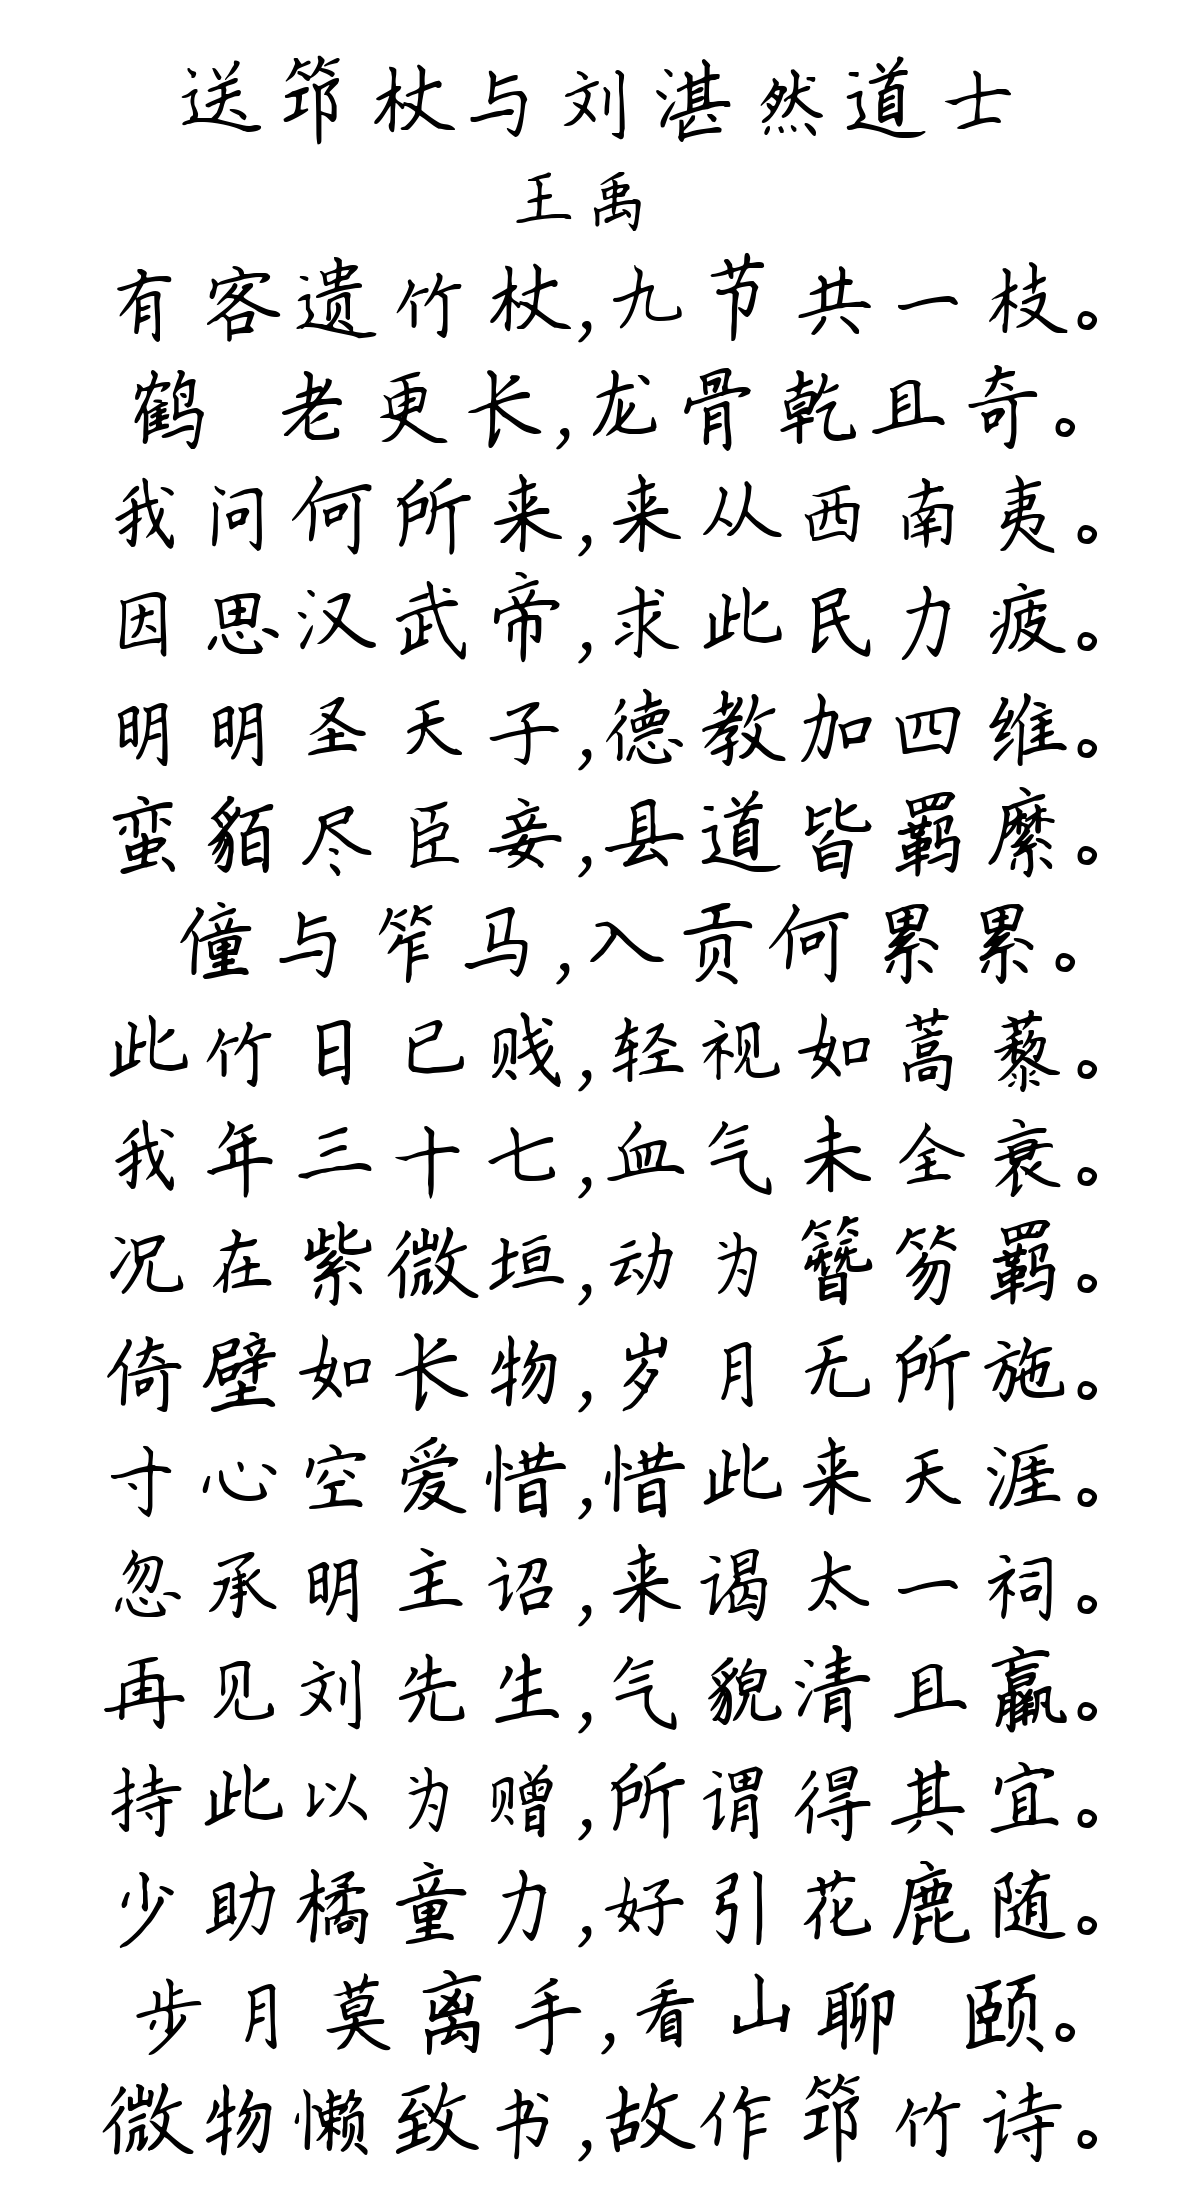 送筇杖与刘湛然道士
王禹
有客遗竹杖,九节共一枝。
鹤 老更长,龙骨乾且奇。
我问何所来,来从西南夷。
因思汉武帝,求此民力疲。
明明圣天子,德教加四维。
蛮貊尽臣妾,县道皆羁縻。
僮与笮马,入贡何累累。
此竹日已贱,轻视如蒿藜。
我年三十七,血气未全衰。
况在紫微垣,动为簪笏羁。
倚壁如长物,岁月无所施。
寸心空爱惜,惜此来天涯。
忽承明主诏,来谒太一祠。
再见刘先生,气貌清且羸。
持此以为赠,所谓得其宜。
少助橘童力,好引花鹿随。
步月莫离手,看山聊 颐。
微物懒致书,故作筇竹诗。